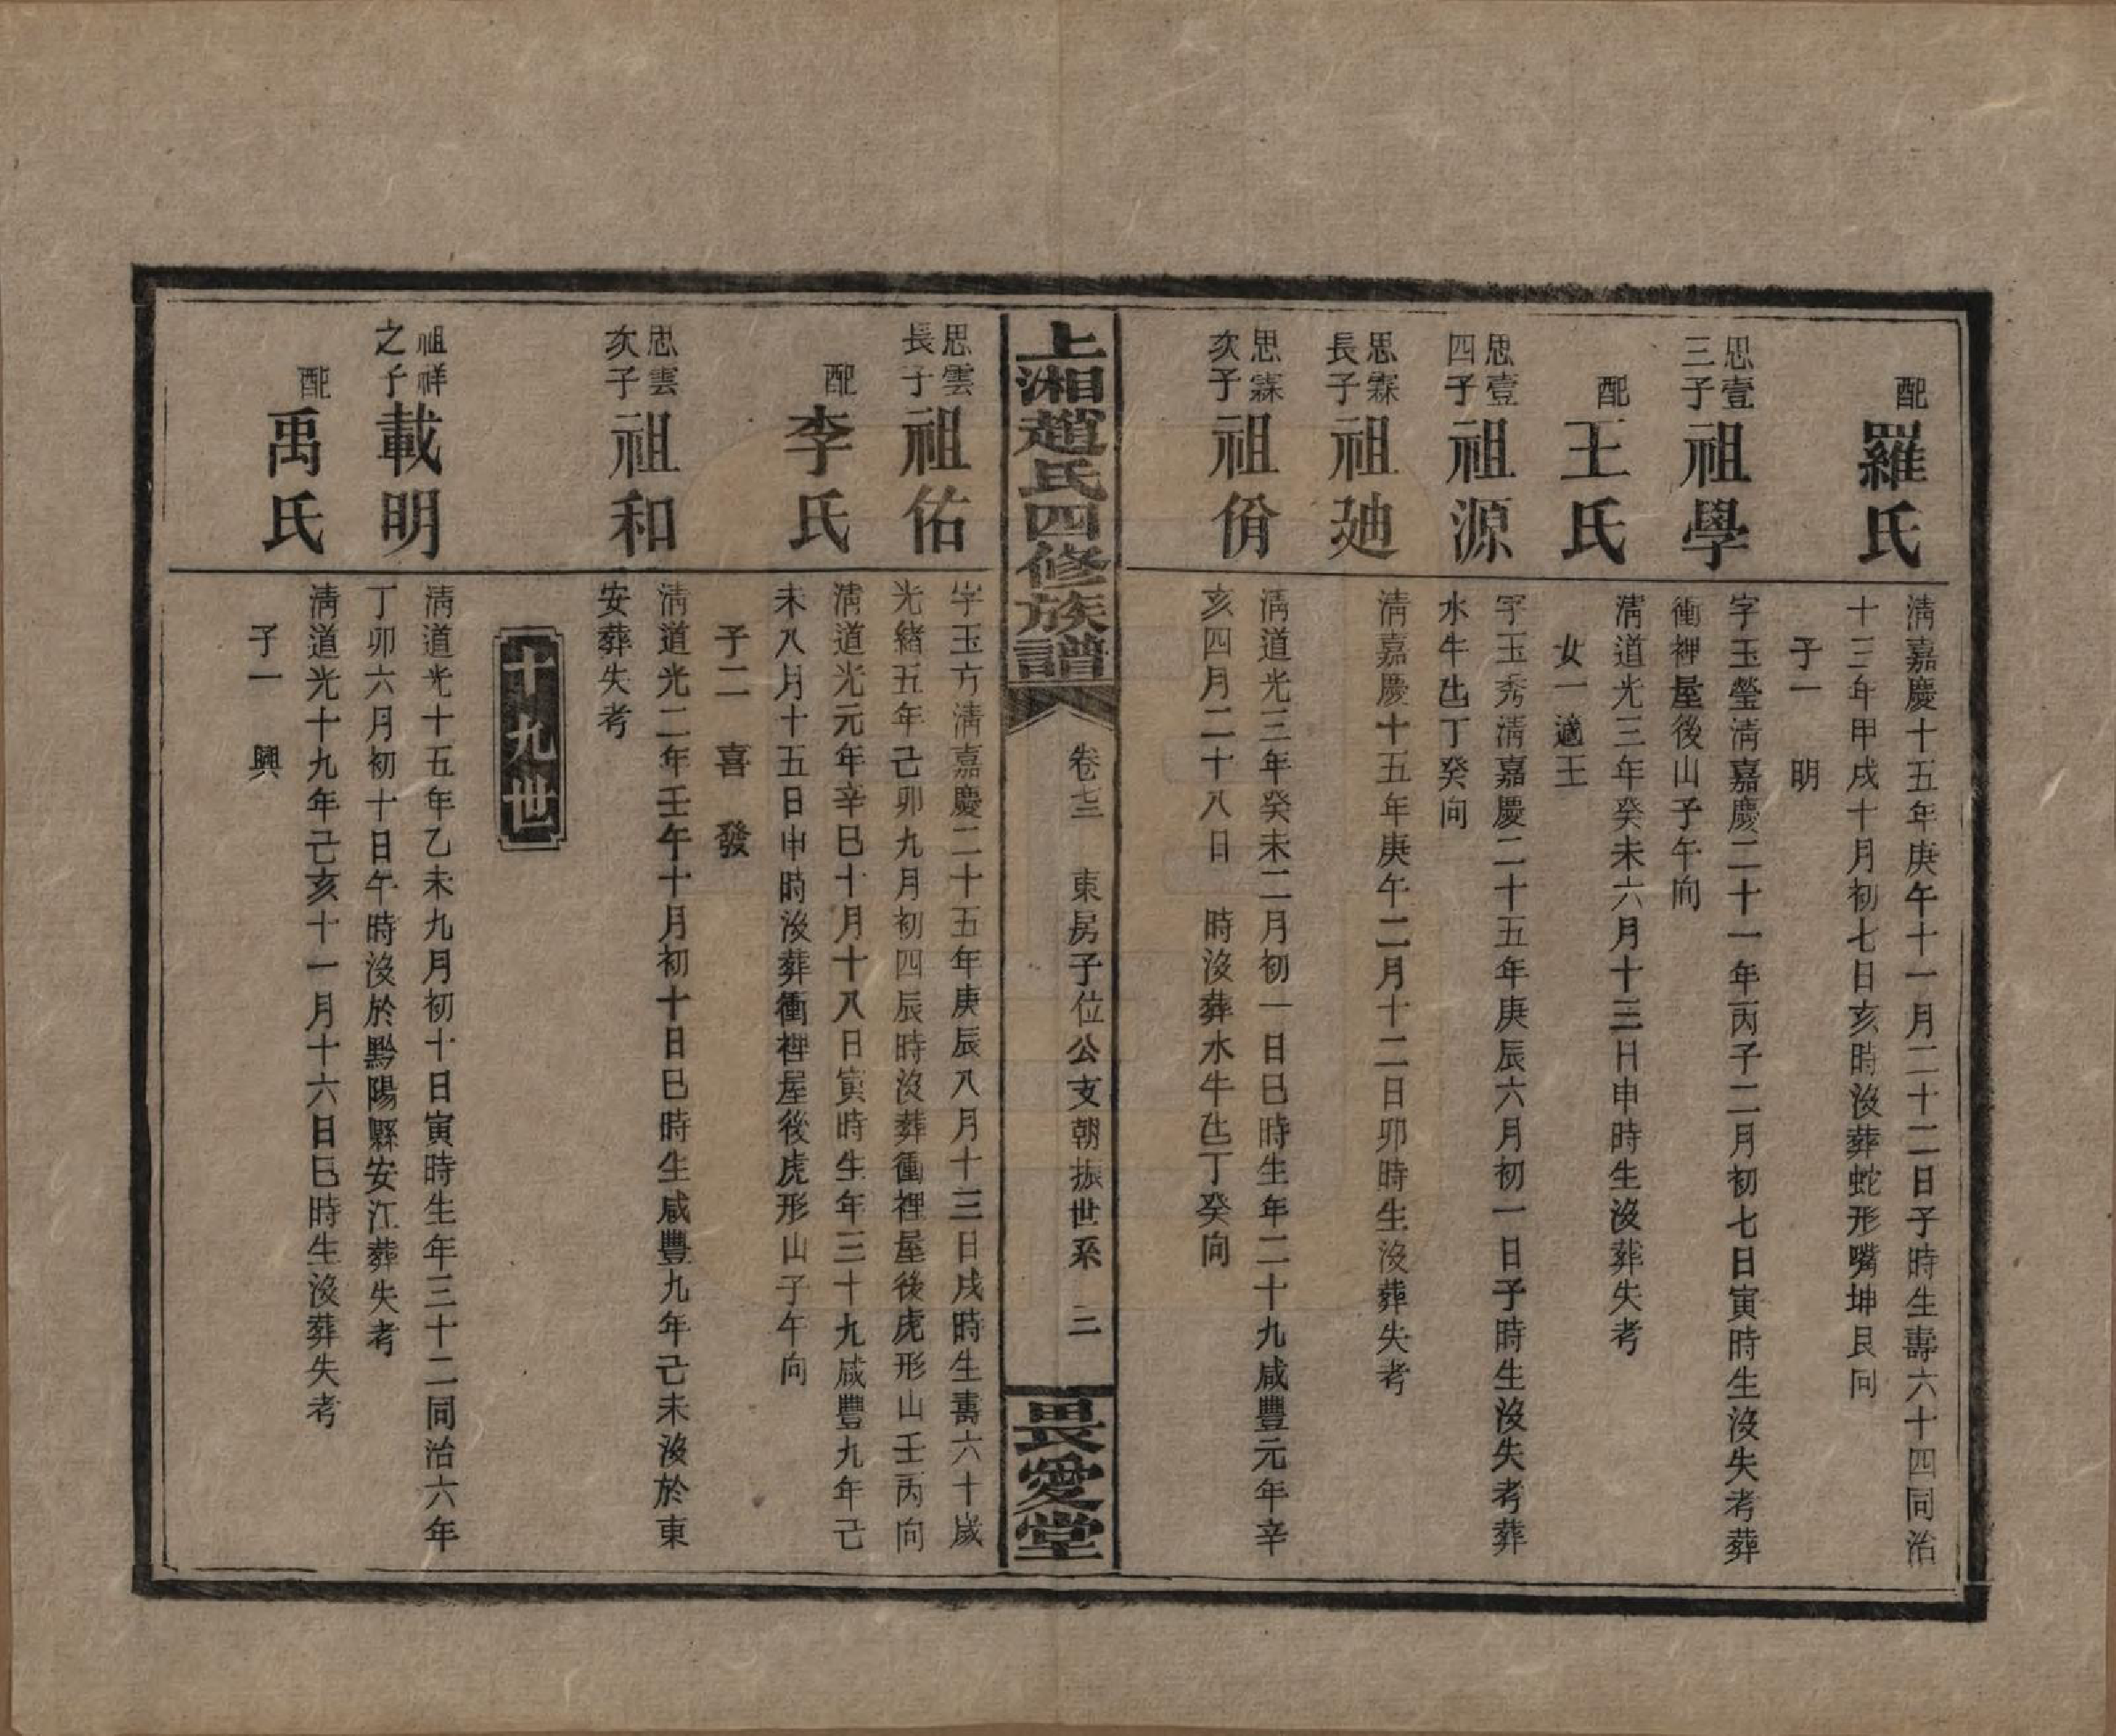 配
羅氏
清嘉慶十五年庚午十一月二十二日子時生壽六十四同治
十三年甲戌十月初七日亥時沒葬蛇形嘴坤艮向
子一 明
思壹
三子
祖學
字玉瑩清嘉慶二十一年丙子二月初七日寅時生沒失考葬
衝裡屋後山子午向
配
王氏
清道光三年癸未六月十三日申時生沒葬失考
女一適王
思壹
四子
祖源
字玉秀清嘉慶二十五年庚辰六月初一日子時生沒失考葬
水牛凼丁癸向
思霖
長子
祖廸
清嘉慶十五年庚午二月十二日卯時生沒葬失考
思霖
次子
祖佾
清道光三年癸未二月初一日巳時生年二十九咸豐元年辛
亥四月二十八日 時沒葬水牛凼丁癸向
上湘趙氏四修族譜
卷七三 東房子位公支朝振世系 二
畏愛堂
思雲
長子
祖佑
字玉方清嘉慶二十五年庚辰八月十三日戌時生壽六十歲
光緒五年己卯九月初四辰時沒葬衝裡屋後虎形山壬丙向
配
李氏
清道光元年辛巳十月十八日寅時生年三十九咸豐九年己
未八月十五日申時沒葬衝裡屋後虎形山子午向
子二 喜 發
思雲
次子
祖和
清道光二年壬午十月初十日巳時生咸豐九年己未沒於東
安葬失考
十九世
祖祥
之子
載明
清道光十五年乙未九月初十日寅時生年三十二同治六年
丁卯六月初十日午時沒於黔陽縣安江葬失考
配
禹氏
清道光十九年己亥十一月十六日巳時生沒葬失考
子一 興